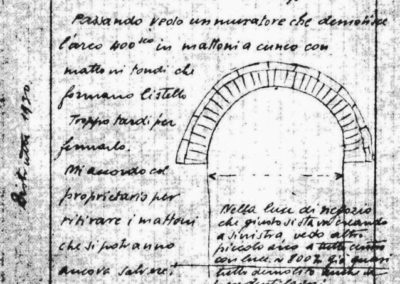 Passando vedo un muratore che demolisce
l'arco 400sco in mattoni a cuneo con
mattoni tondi che
formano listello
Troppo tardi per
fermarlo.
Mi accordo col
proprietario per
ritirare i mattoni
che si potranno
ancora salvare:
Nella luce di negozio
che giusto si sta
a sinistra, vedo altro
piccolo arco a tutto
con luce, ~ 800 già quasi
tutto demolito
1930